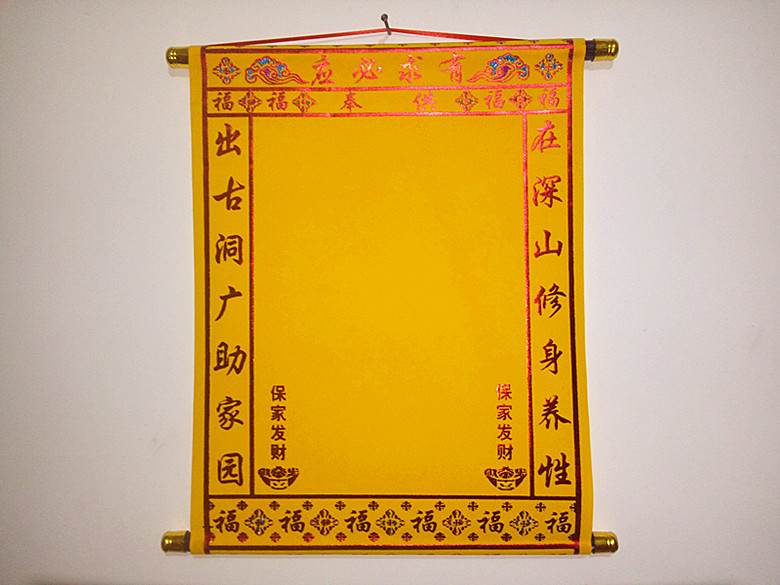 应必求有
福福奉供福福
在深山修身养性
出古洞广助家园
保家发财
保家发财
福福福福福福